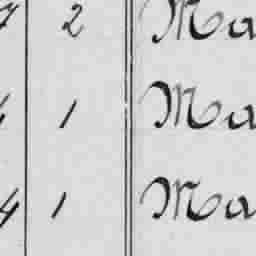 7 2 Ma
4 1 Ma
4 1 Ma